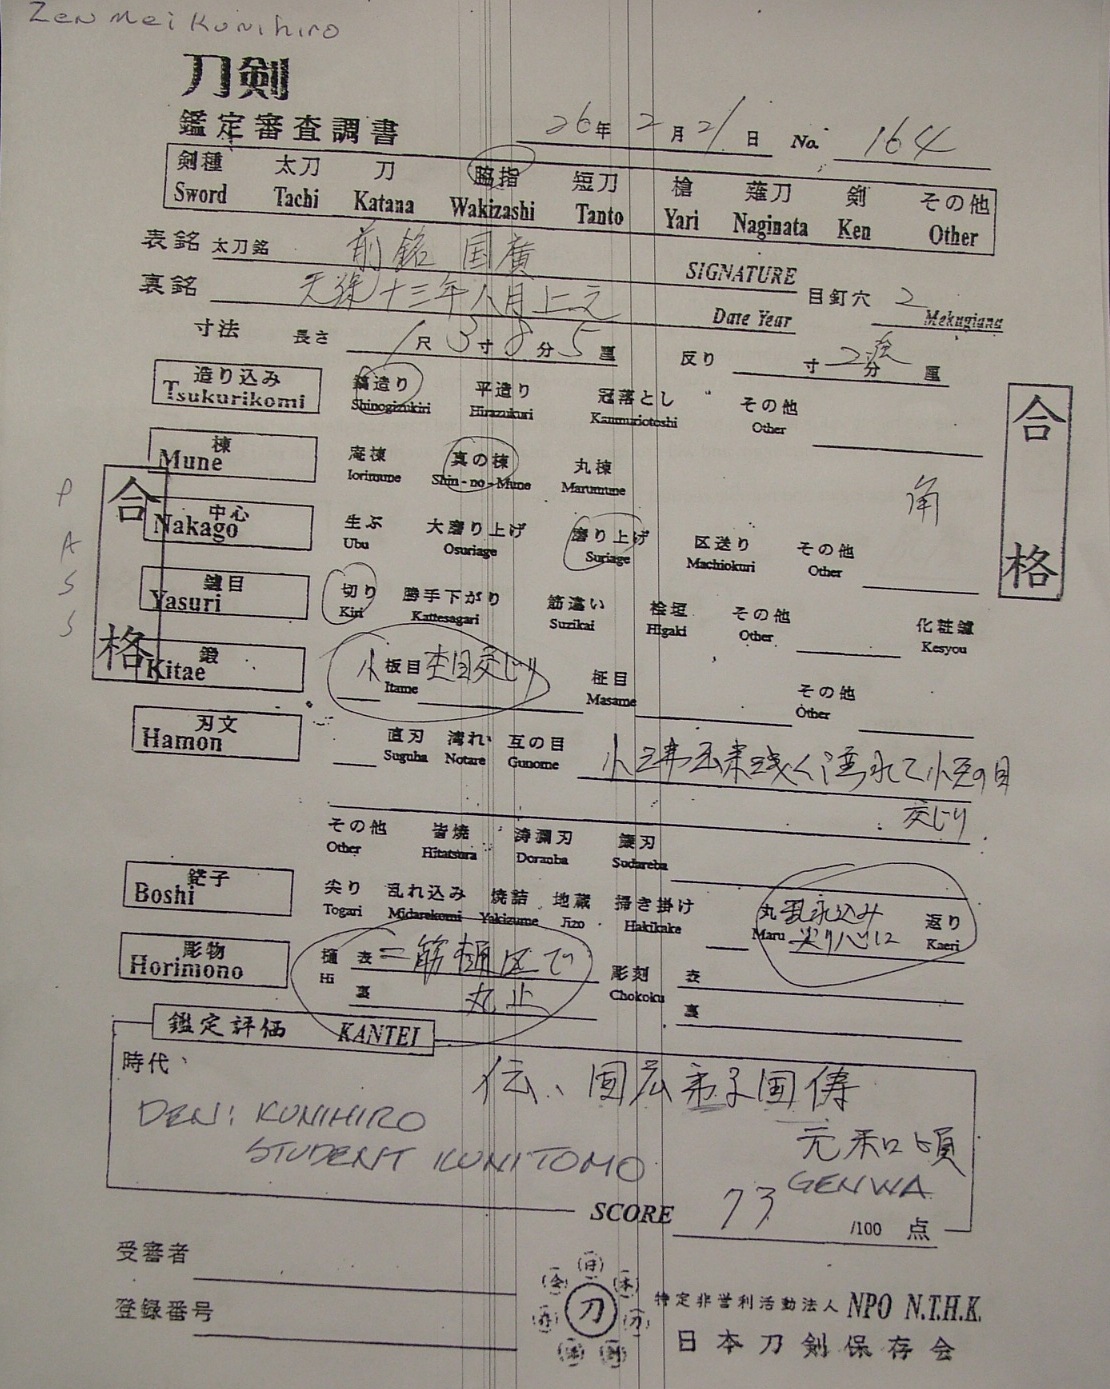 Zen Mei Kunihiro
刀剣
鑑定審査調書
26年 2月 21日 No. 164
剣種 太刀 刀 脇指 短刀 槍 薙刀 剣 その他
Sword Tachi Katana Wakizashi Tanto Yari Naginata Ken Other
表銘 太刀銘 前銘 国廣 SIGNATURE
裏銘 天 十三年八月上 Date Year 目釘穴 2 Mekugiana
寸法 長さ 1尺 3寸 8分 5厘 反り 寸 2分 厘
造り込み 鎬造り 平造り 冠落とし その他
Tsukurikomi Shinogizukiri Hirazukuri Kanmuriotoshi Other
棟 庵棟 真の棟 丸棟
Mune Iorimune Shin-no-Mune Marumune
合格
角
合格
PASS
中心 生ぶ 大磨り上げ 磨り上げ 区送り その他
Nakago Ubu Osuriage Suriage Machiokuri Other
鑢目 切り 勝手下がり 筋違い 桧垣 その他 化粧鑢
Yasuri Kiri Kattesagari Suzikai Higaki Other Kesyou
鍛 小板目 杢目交じり 柾目 その他
Kitae Itame Masame Other
刃文 直刃 湾れ 互の目 小沸出来浅く湾れて小互の目
Hamon Suguha Notare Gunome
交じり
その他 皆焼 濤瀾刃 簾刃
Other Hitatsura Doranba Sudareba
鋩子 尖り 乱れ込み 焼詰 地蔵 掃き掛け 丸 乱れ込み 返り
Boshi Togari Midarekomi Yakizume Jizo Hakikake Maru 尖り心に Kaeri
彫物 樋 表 二筋樋区で 彫刻 表
Horimono Hi 裏 丸止 Chokoku 裏
鑑定評価 KANTEI
時代、
伝、国広弟子国儔
DEN: KUNIHIRO
STUDENT KUNITOMO
元和頃
GENWA
SCORE 73 /100 点
受審者
登録番号
刀
特定非営利活動法人 NPO N.T.H.K.
日本刀剣保存会